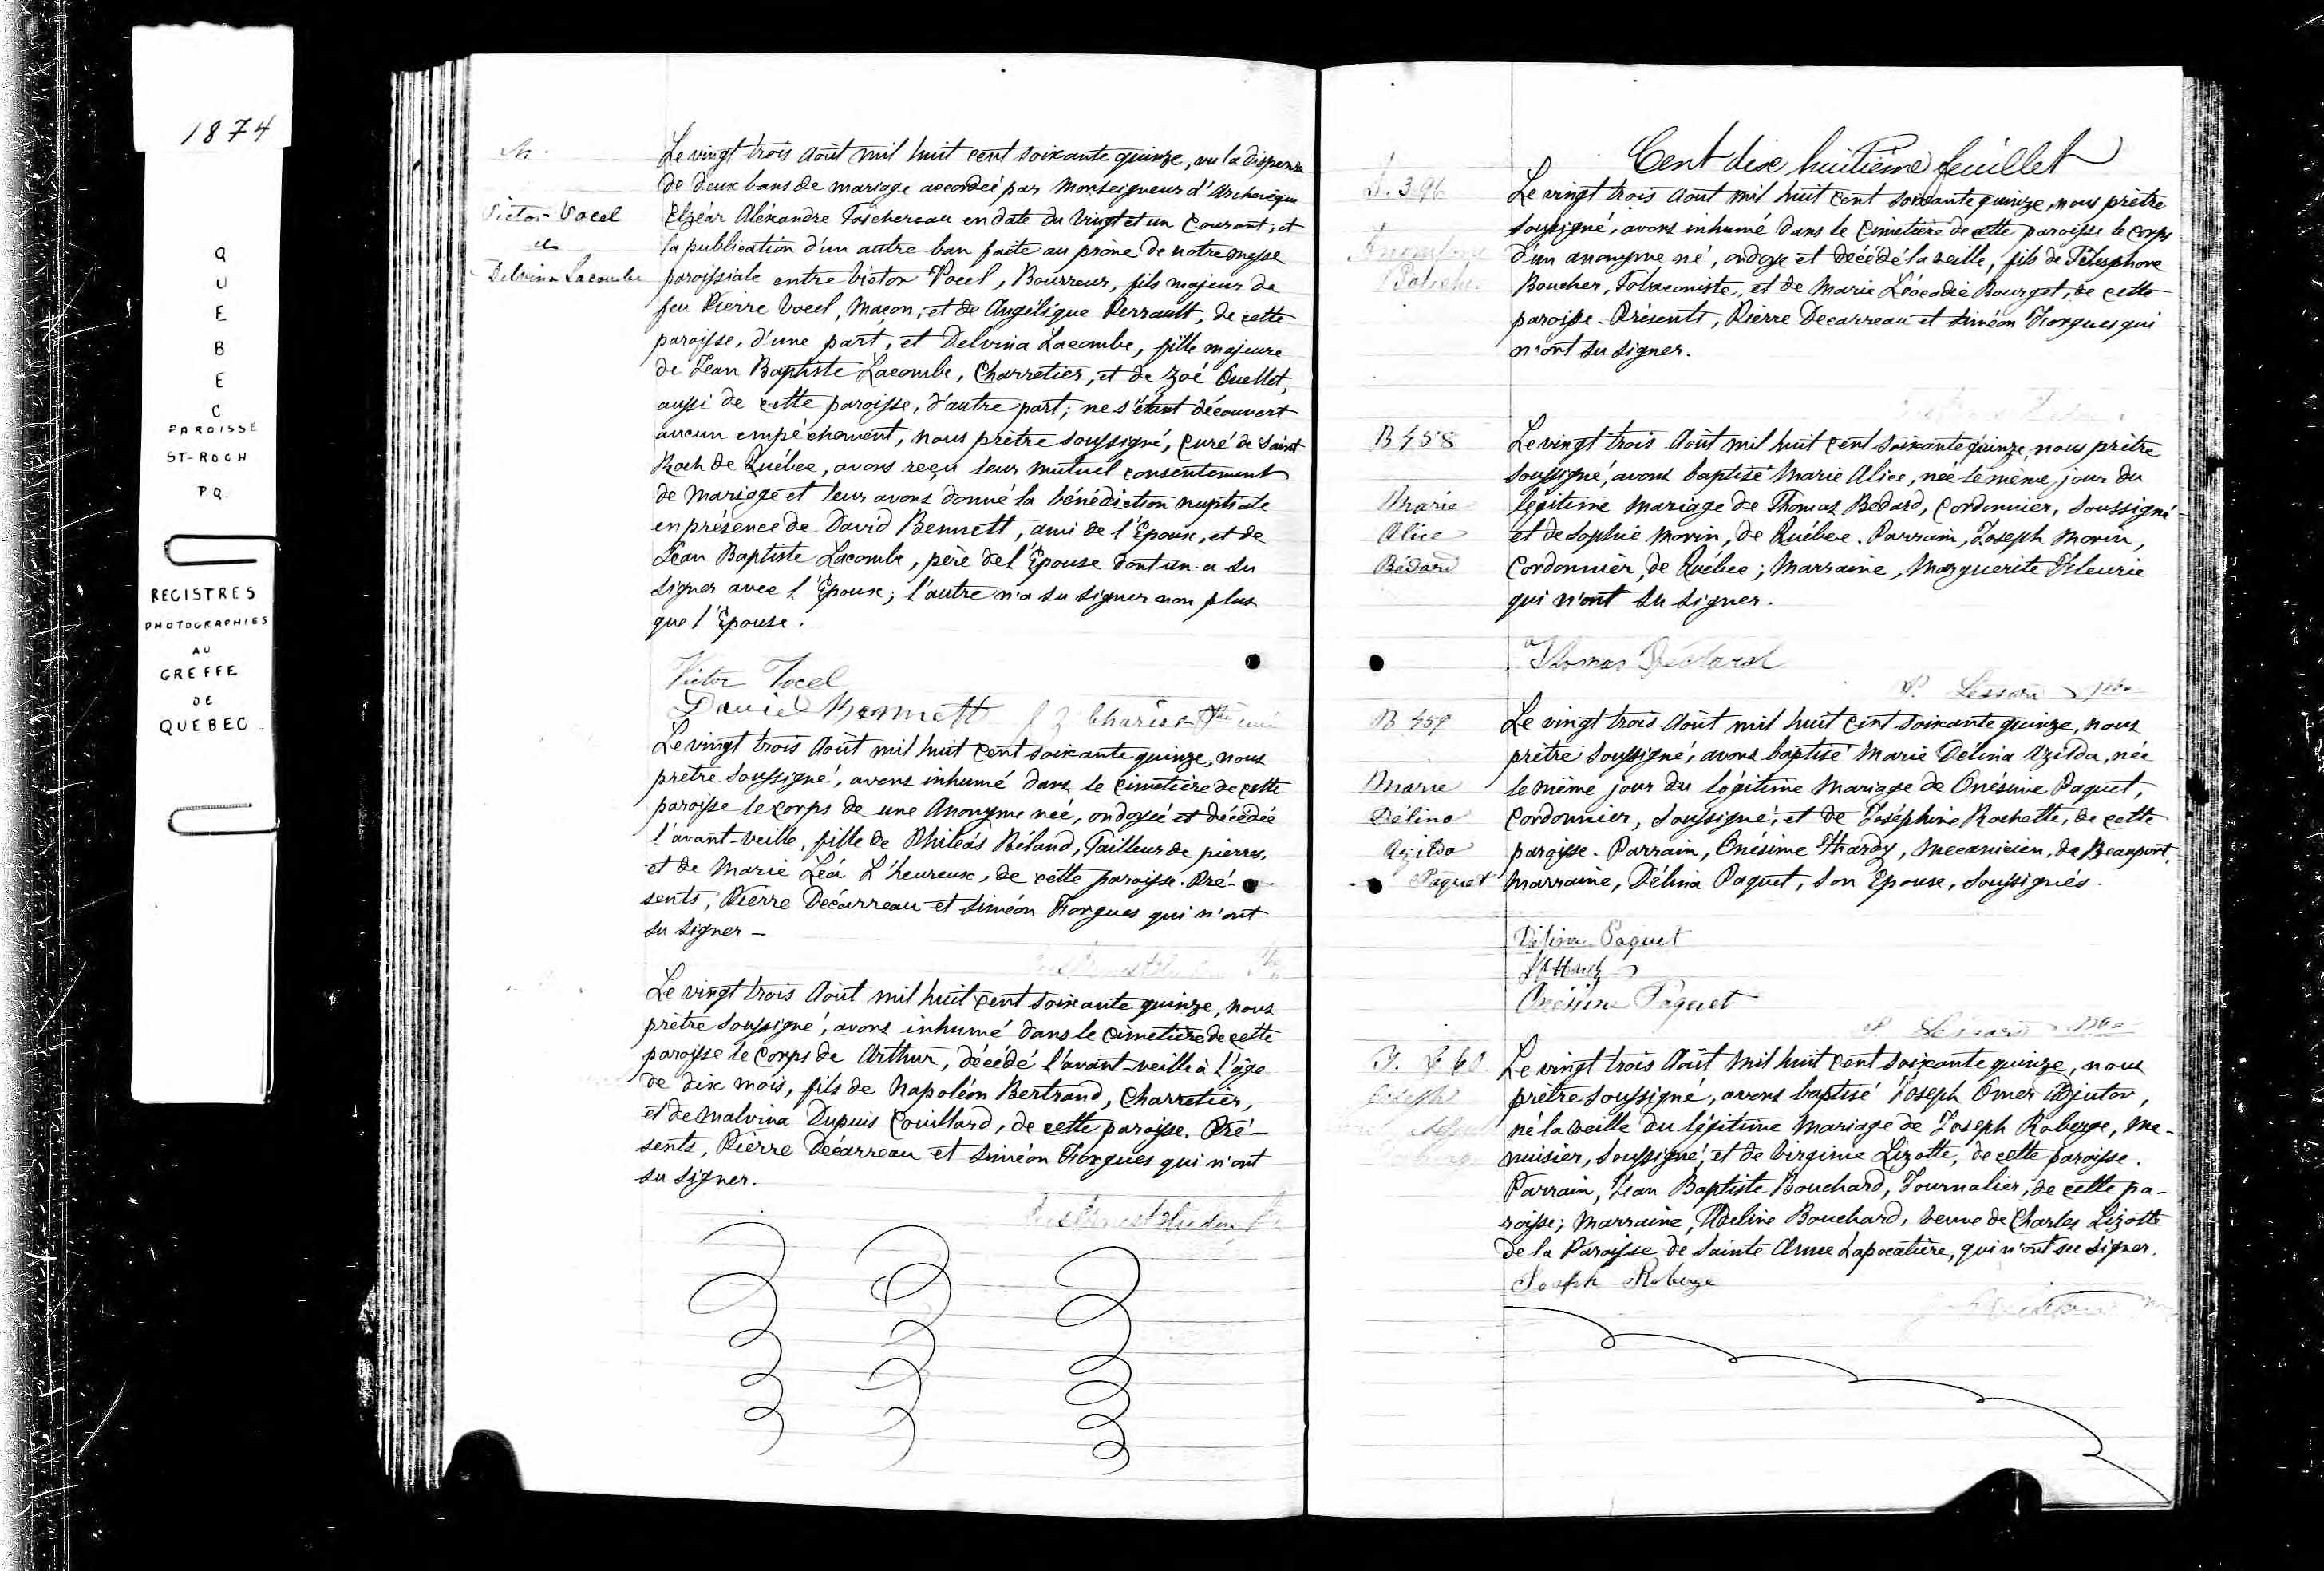 1874
QUEBEC
PAROISSE
ST-ROCH
P.Q.
REGISTRES
PHOTOGRAPHIES
AU
GREFFE
DE
QUEBEC
M.
Victor Vocel
et
Delvina Lacombe
Le vingt trois Août mil huit cent soixante quinze, vu la dispense
de deux bans de mariage accordée par Monseigneur d'Archevêque
Elzéar Aléxandre Taschereau en date du vingt et un courant, et
la publication d'un autre ban faite au prône de notre messe
paroissiale entre Victor Vocel, Bourreur, fils majeur de
feu Pierre Vocel, Maçon, et de Angélique Perrault, de cette
paroisse, d'une part, et Delvina Lacombe, fille majeure
de Jean Baptiste Lacombe, Charretier, et de Zoé Ouellet,
aussi de cette paroisse, d'autre part; ne s'étant découvert
aucun empêchement, nous prêtre soussigné, curé de Saint
Roch de Québec, avons reçu leur mutuel consentement
de mariage et leur avons donné la bénédiction nuptiale
en présence de David Bennett, ami de l'Epoux, et de
Jean Baptiste Lacombe, père de l'Epouse dont un a su
signer avec l'Epoux; l'autre n'a su signer non plus
que l'Epouse.
Victor Vocel
David Bennett J. Z. Charest Ptre curé
Le vingt trois Août mil huit cent soixante quinze, nous
prêtre soussigné, avons inhumé dans le cimetière de cette
paroisse le corps de une Anonyme née, ondoyée et décédée
l'avant-veille, fille de Philéas Béland, Tailleur de pierres,
et de Marie Léa L'heureux, de cette paroisse. Pré-
sents, Pierre Décarreau et Siméon Forgues qui n'ont
su signer -
Le vingt trois Août mil huit cent soixante quinze, nous
prêtre soussigné, avons inhumé dans le cimetière de cette
paroisse le corps de Arthur, décédé l'avant-veille à l'âge
de dix mois, fils de Napoléon Bertrand, Charretier,
et de Malvina Dupuis Couillard, de cette paroisse. Pré-
sents, Pierre Décarreau et Siméon Forgues qui n'ont
su signer.
Cent dix huitième feuillet
S. 396
Anonyme
Boucher
Le vingt trois Août mil huit cent soixante quinze, nous prêtre
soussigné, avons inhumé dans le cimetière de cette paroisse le corps
d'un anonyme né, ondoyé et décédé la veille, fils de Télesphore
Boucher, Tobaconiste, et de Marie Léocadie Bourget, de cette
paroisse. Présents, Pierre Decarreau et Siméon Forgues qui
n'ont su signer.
B 458
Marie
Alice
Bédard
Le vingt trois Août mil huit cent soixante quinze, nous prêtre
soussigné, avons baptisé Marie Alice, née le même jour du
légitime mariage de Thomas Bedard, Cordonnier, soussigné -
et de Sophie Morin, de Québec. Parrain, Joseph Morin,
Cordonnier, de Québec; Marraine, Marguerite Fleurie
qui n'ont su signer.
Thomas Bédard
P. Lessard Ptre
B 459
Marie
Délina
Azilda
Paquet
Le vingt trois Août mil huit cent soixante quinze, nous
prêtre soussigné, avons baptisé Marie Délina Azilda, née
le même jour du légitime Mariage de Onésime Paquet,
Cordonnier, soussigné, et de Joséphine Rochette, de cette
paroisse. Parrain, Onésime Hardy, mecanicien, de Beauport,
Marraine, Délina Paquet, son Epouse, soussignés.
Délina Paquet
O Hardy
Onésime Paquet
P. Lessard Ptre
B. 460
Joseph
Le vingt trois Août mil huit cent soixante quinze, nous
prêtre soussigné, avons baptisé Joseph Omer Adjutor,
né la veille du légitime Mariage de Joseph Roberge, me-
nuisier, soussigné, et de Virginie Lizotte, de cette paroisse.
Parrain, Jean Baptiste Bouchard, Journalier, de cette pa-
roisse; Marraine, Adeline Bouchard, veuve de Charles Lizotte
de la Paroisse de Sainte Anne Lapocatière, qui n'ont su signer.
Joseph Roberge